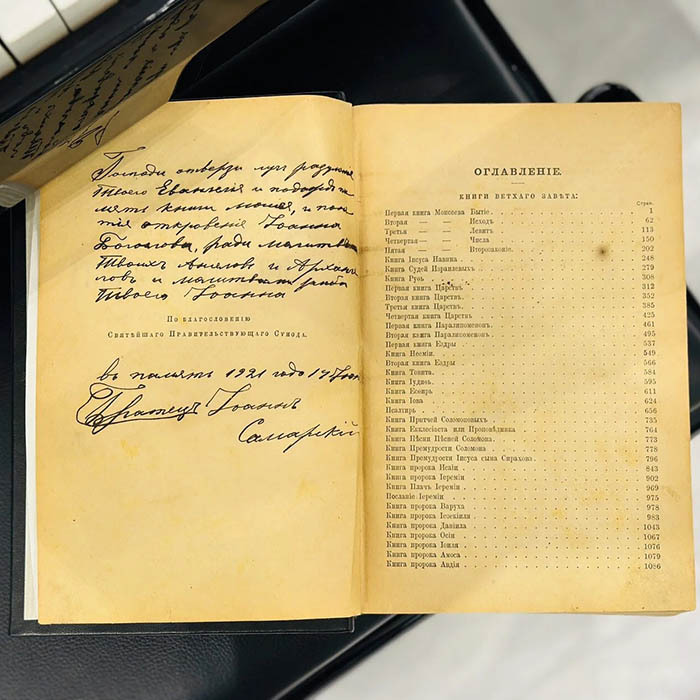 Господи отверзи
Твоего Евангелія и
мять книги моея, и
тія откровенія Іоанна
Богослова, ради молитвъ
Твоихъ Ангелов и Арханге
лов и молитвы раба
Твоего Іоанна
По благословенію
Святѣйшаго Правительствующаго Сѵнода.
въ память 1921 годо 17
Братецъ Іоаннъ
Самарскій
ОГЛАВЛЕНІЕ.
КНИГИ ВЕТХАГО ЗАВѢТА:
Стран.
Первая книга Моисеева Бытіе 1
Вторая — — Исходъ 62
Третья — — Левитъ 113
Четвертая — — Числа 150
Пятая — — Второзаконіе 202
Книга Іисуса Навина 248
Книга Судей Израилевыхъ 279
Книга Руѳь 308
Первая книга Царствъ 312
Вторая книга Царствъ 352
Третья книга Царствъ 385
Четвертая книга Царствъ 425
Первая книга Паралипоменонъ 461
Вторая книга Паралипоменонъ 495
Первая книга Ездры 537
Книга Нееміи 549
Вторая книга Ездры 566
Книга Товита 584
Книга Іудиѳь 595
Книга Есѳирь 611
Книга Іова 624
Псалтирь 656
Книга Притчей Соломоновыхъ 735
Книга Екклесіаста или Проповѣдника 764
Книга Пѣсни Пѣсней Соломона 773
Книга Премудрости Соломона 778
Книга Премудрости Іисуса сына Сирахова 796
Книга пророка Исаіи 843
Книга пророка Іереміи 902
Книга Плачъ Іереміи 969
Посланіе Іереміи 975
Книга пророка Варуха 978
Книга пророка Іезекіиля 983
Книга пророка Даніила 1043
Книга пророка Осіи 1067
Книга пророка Іоиля 1076
Книга пророка Амоса 1079
Книга пророка Авдія 1086